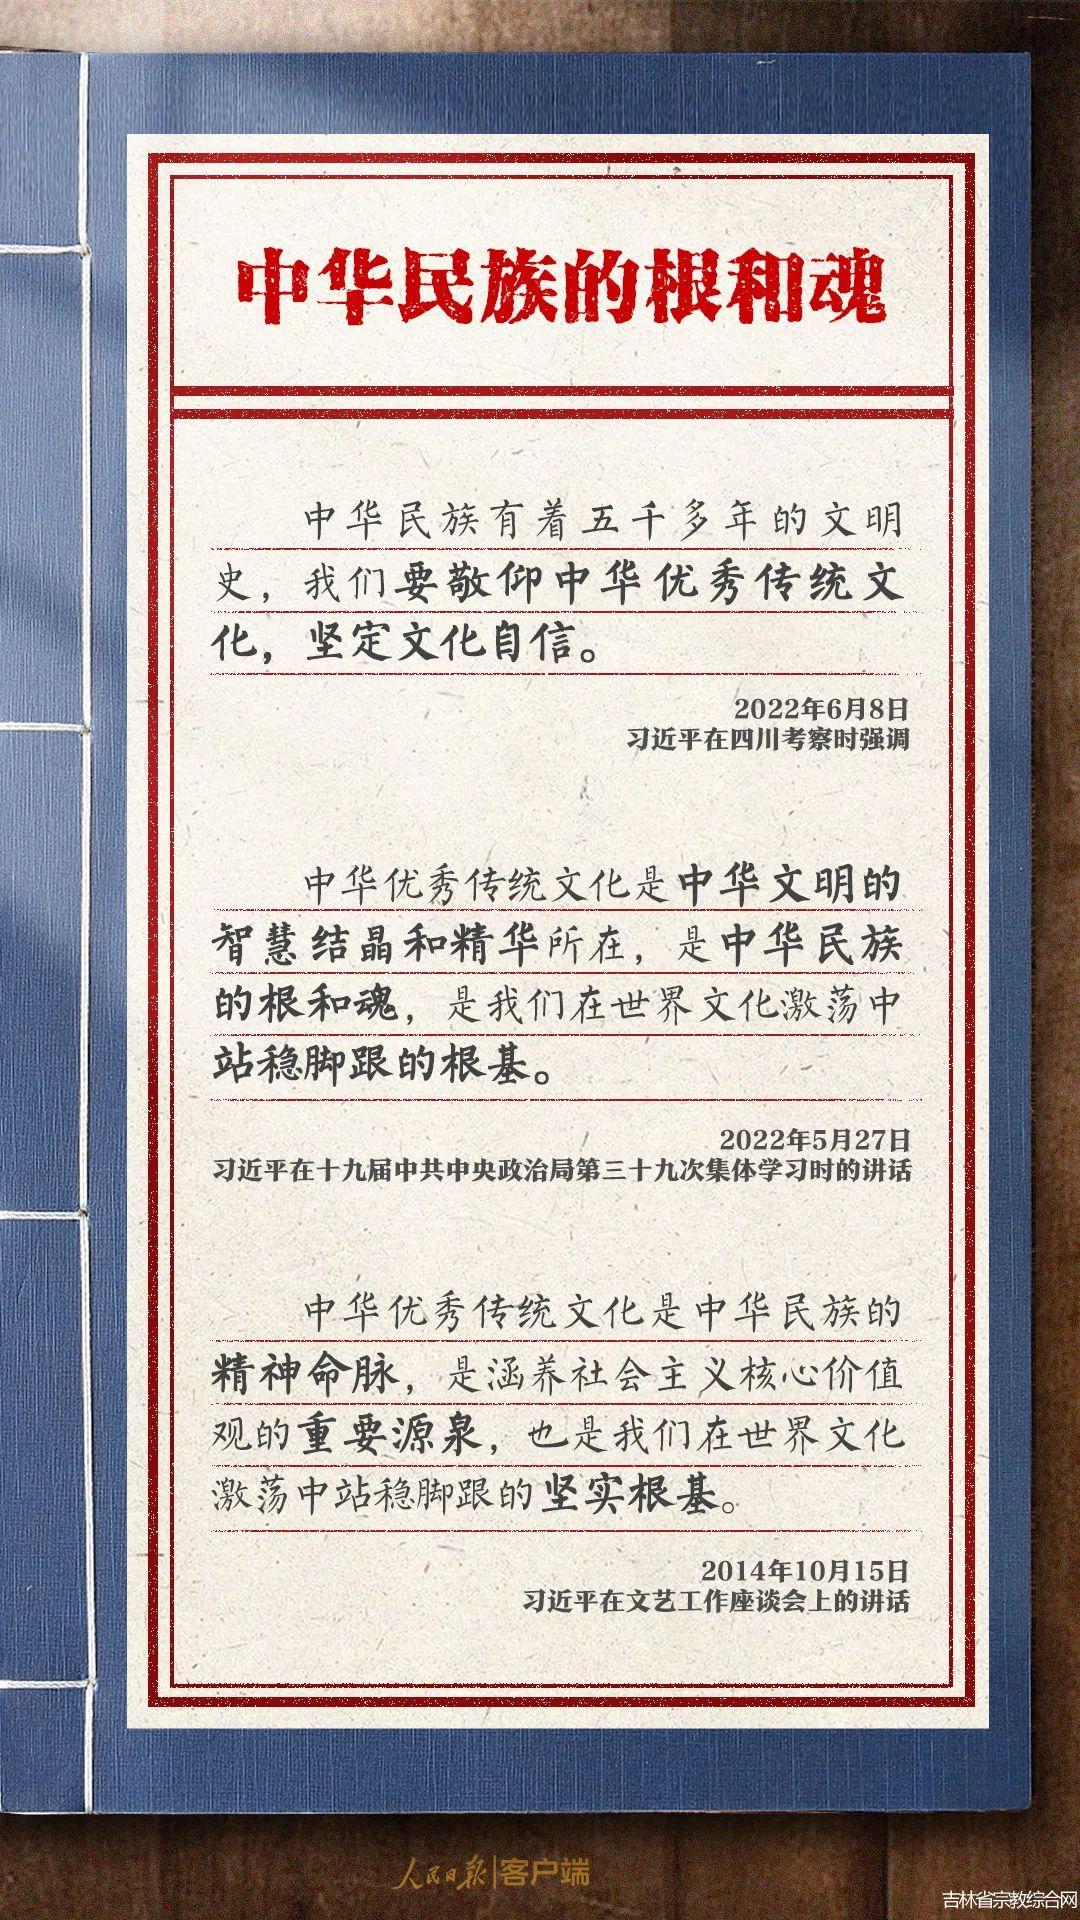 中华民族的根和魂
中华民族有着五千多年的文明
史，我们要敬仰中华优秀传统文
化，坚定文化自信。
2022年6月8日
习近平在四川考察时强调
中华优秀传统文化是中华文明的
智慧结晶和精华所在，是中华民族
的根和魂，是我们在世界文化激荡中
站稳脚跟的根基。
2022年5月27日
习近平在十九届中共中央政治局第三十九次集体学习时的讲话
中华优秀传统文化是中华民族的
精神命脉，是涵养社会主义核心价值
观的重要源泉，也是我们在世界文化
激荡中站稳脚跟的坚实根基。
2014年10月15日
习近平在文艺工作座谈会上的讲话
人民日报|客户端
吉林省宗教综合网